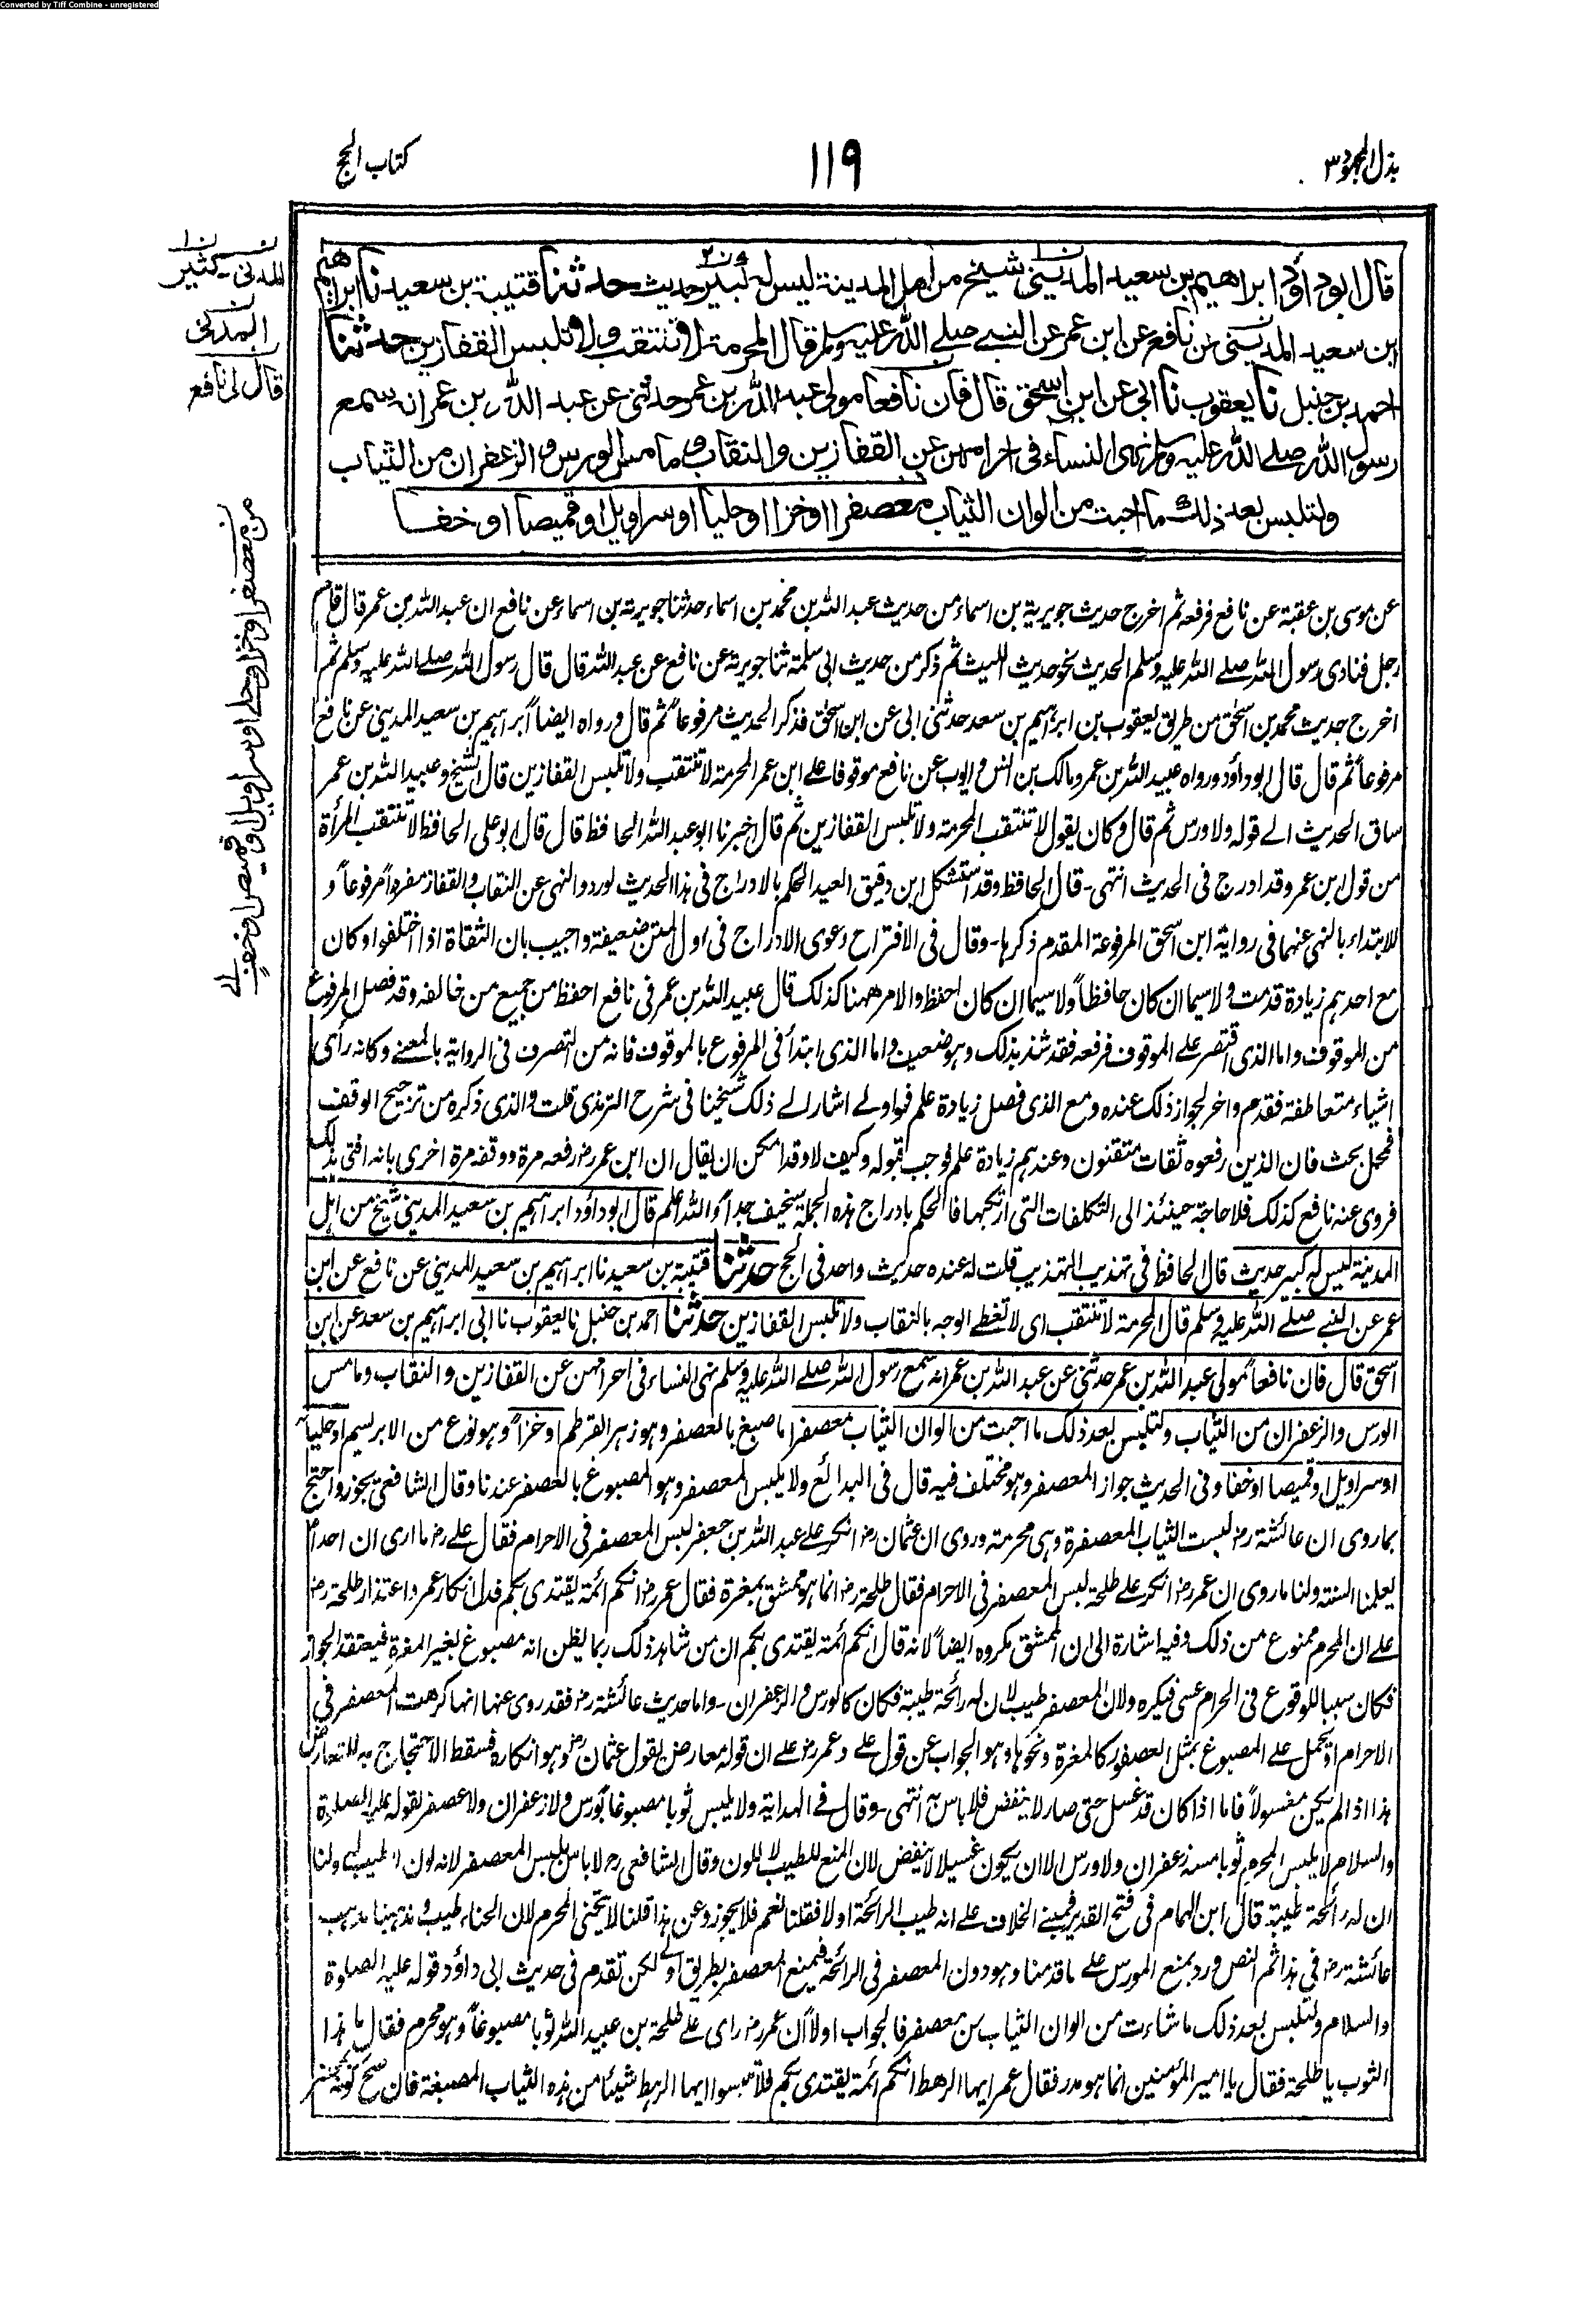 Converted by Tiff Combine - unregistered
بذل المجهود ٣
١١٩
كتاب الحج
قال ابو داؤد ابراهيم بن سعيد المديني شيخ من اهل المدينة ليس له كبير حديث حدثنا قتيبة بن سعيد نا ابراهيم
ابن سعيد المديني عن نافع عن ابن عمر عن النبي صلے الله عليه وسلم قال المحرمة لا تنتقب ولا تلبس القفازين حدثنا
احمد بن حنبل نا يعقوب نا ابى عن ابن اسحق قال فان نافعا مولى عبد الله بن عمر حدثنى عن عبد الله بن عمر انه سمع
رسول الله صلے الله عليه وسلم نهى النساء فى احرامهن عن القفازين والنقاب وما مس الورس والزعفران من الثياب
ولتلبس بعد ذلك ما احبت من الوان الثياب معصفرا او خزا او حليا او سراويل او قميصا او خفا
المدنى - كثير
المدنى
قال لى نافع
من معصفر او خز او حلے او سراويل او قميص او خف
عن موسى بن عقبة عن نافع فرفعه ثم اخرج حديث جويرية بن اسماء من حديث عبد الله بن محمد بن اسماء حدثنا جويرية بن اسماء عن نافع ان عبد الله بن عمر قال قام
رجل فنادى رسول الله صلے الله عليه وسلم الحديث نحو حديث الليث ثم ذكر من حديث ابى سلمة ثنا جويرية عن نافع عن عبد الله قال قال رسول الله صلے الله عليه وسلم ثم
اخرج حديث محمد بن اسحٰق من طريق يعقوب بن ابراهيم بن سعد حدثنى ابى عن ابن اسحٰق فذكر الحديث مرفوعاً ثم قال ورواه ايضاً ابراهيم بن سعيد المدينى عن نافع
مرفوعاً ثم قال قال ابو داؤد ورواه عبيد الله بن عمر ومالك بن انس وايوب عن نافع موقوفا على ابن عمر المحرمة لا تنتقب ولا تلبس القفازين قال الشيخ وعبيد الله بن عمر
ساق الحديث الے قوله ولا ورس ثم قال وكان يقول لا تنتقب المحرمة ولا تلبس القفازين ثم قال اخبرنا ابو عبد الله الحافظ قال قال ابو على الحافظ لا تنتقب المرأة
من قول ابن عمر وقد ادرج فى الحديث انتهى - قال الحافظ وقد استشكل ابن دقيق العيد الحكم بالادراج فى هذا الحديث لورود النهى عن النقاب والقفاز مفرداً مرفوعاً و
للابتداء بالنهى عنهما فى رواية ابن اسحق المرفوعة المقدم ذكرها - وقال فى الاقتراح دعوى الادراج فى اول المتن ضعيفة واجيب بان الثقاة اذا اختلفوا وكان
مع احدهم زيادة قدمت ولا سيما ان كان حافظاً ولا سيما ان كان احفظ والامر ههنا كذلك قال عبيد الله بن عمر فى نافع احفظ من جميع من خالفه وقد فصل المرفوع
من الموقوف واما الذى اقتصر على الموقوف فرفعه فقد شذ بذلك وهو ضعيف واما الذى ابتدأ فى المرفوع بالموقوف فانه من التصرف فى الرواية بالمعنے وكانه رأى
اشياء متعاطفة فقدم واخر لجواز ذلك عنده ومع الذى فصل زيادة علم فهو اولے اشار الے ذلك شيخنا فى شرح الترمذى قلت والذى ذكره من ترجيح الوقف
فمحل بحث فان الذين رفعوه ثقات متقنون وعندهم زيادة علم فوجب قبوله وكيف لا وقد امكن ان يقال ان ابن عمر رضـ رفعه مرة ووقفه مرة اخرى بانه افتى بذلك
فروى عنه نافع كذلك فلا حاجة حينئذ الى التكلفات التى ارتكبها فالحكم بادراج هذه الجملة سخيف جداً والله اعلم قال ابو داؤد ابراهيم بن سعيد المدينى شيخ من اهل
المدينة ليس له كبير حديث قال الحافظ فى تهذيب التهذيب قلت له عنده حديث واحد فى الحج حدثنا قتيبة بن سعيد نا ابراهيم بن سعيد المدينى عن نافع عن ابن
عمر عن النبے صلے الله عليه وسلم قال المحرمة لا تنتقب اى لا تغطے الوجه بالنقاب ولا تلبس القفازين حدثنا احمد بن حنبل نا يعقوب نا ابى ابراهيم بن سعد عن ابن
اسحق قال فان نافعاً مولى عبد الله بن عمر حدثنى عن عبد الله بن عمر انه سمع رسول الله صلے الله عليه وسلم نهى النساء فى احرامهن عن القفازين والنقاب وما مس
الورس والزعفران من الثياب ولتلبس بعد ذلك ما احبت من الوان الثياب معصفرا ما صبغ بالعصفر وهو زهر القرطم او خزاً وهو نوع من الابريسم او حلياً
او سراويل او قميصا او خفا وفى الحديث جواز المعصفر وهو مختلف فيه قال فى البدائع ولا يلبس المعصفر وهو المصبوغ بالعصفر عندنا وقال الشافعى يجوز واحتج
بما روى ان عائشة رضـ لبست الثياب المعصفرة وهى محرمة وروى ان عثمان رضـ انكر على عبد الله بن جعفر لبس المعصفر فى الاحرام فقال على رضـ ما ارى ان احداً
يعلمنا السنة ولنا ما روى ان عمر رضـ انكر على طلحة لبس المعصفر فى الاحرام فقال طلحة رضـ انما هو ممشق بمغرة فقال عمر رضـ انكم ائمة يقتدى بكم فدل انكار عمر واعتذار طلحة رضـ
على ان المحرم ممنوع من ذلك وفيه اشارة الى ان الممشق مكروه ايضاً لانه قال انكم ائمة يقتدى بكم ان من شاهد ذلك ربما يظن انه مصبوغ بغير المغرة فيعتقد الجواز
فكان سببا للوقوع فى الحرام عسى فيكره ولان المعصفر طيب لان له رائحة طيبة فكان كالورس والزعفران - واما حديث عائشة رضـ فقد روى عنها انها كرهت المعصفر فى
الاحرام او يحمل على المصبوغ بمثل العصفر كالمغرة ونحوها وهو الجواب عن قول على وعمر رضـ على ان قوله معارض بقول عثمان رضـ وهو انكاره فسقط الاحتجاج به للتعارض
هذا اذا لم يكن مغسولاً فاما اذا كان قد غسل حتى صار لا ينفض فلا باس به انتهى - وقال فے الهداية ولا يلبس ثوبا مصبوغا بورس ولا زعفران ولا عصفر لقوله عليه الصلوة
والسلام لا يلبس المحرم ثوبا مسه زعفران ولا ورس الا ان يكون غسيلا لا ينفض لان المنع للطيب لا للون وقال الشافعى رح لا باس بلبس المعصفر لانه لون لا طيب له ولنا
ان له رائحة طيبة قال ابن الهمام فى فتح القدير فمبنے الخلاف على انه طيب الرائحة اولا فقلنا نعم فلا يجوز وعن هذا قلنا لا يتحنى المحرم لان الحناء طيب ومذهبنا مذهب
عائشة رضـ فى هذا ثم النص ورد بمنع المورس على ما قدمنا وهو دون المعصفر فى الرائحة فيمنع المعصفر بطريق اولے لكن تقدم فى حديث ابى داؤد قوله عليه الصلوة
والسلام ولتلبس بعد ذلك ما شاءت من الوان الثياب من معصفر فالجواب اولاً ان عمر رضـ راى على طلحة بن عبيد الله ثوبا مصبوغاً وهو محرم فقال ما هذا
الثوب يا طلحة فقال يا امير المؤمنين انما هو مدر فقال عمر ايها الرهط انكم ائمة يقتدى بكم فلا تلبسوا ايها الرهط شيئا من هذه الثياب المصبغة فان صح كونه بمحضر